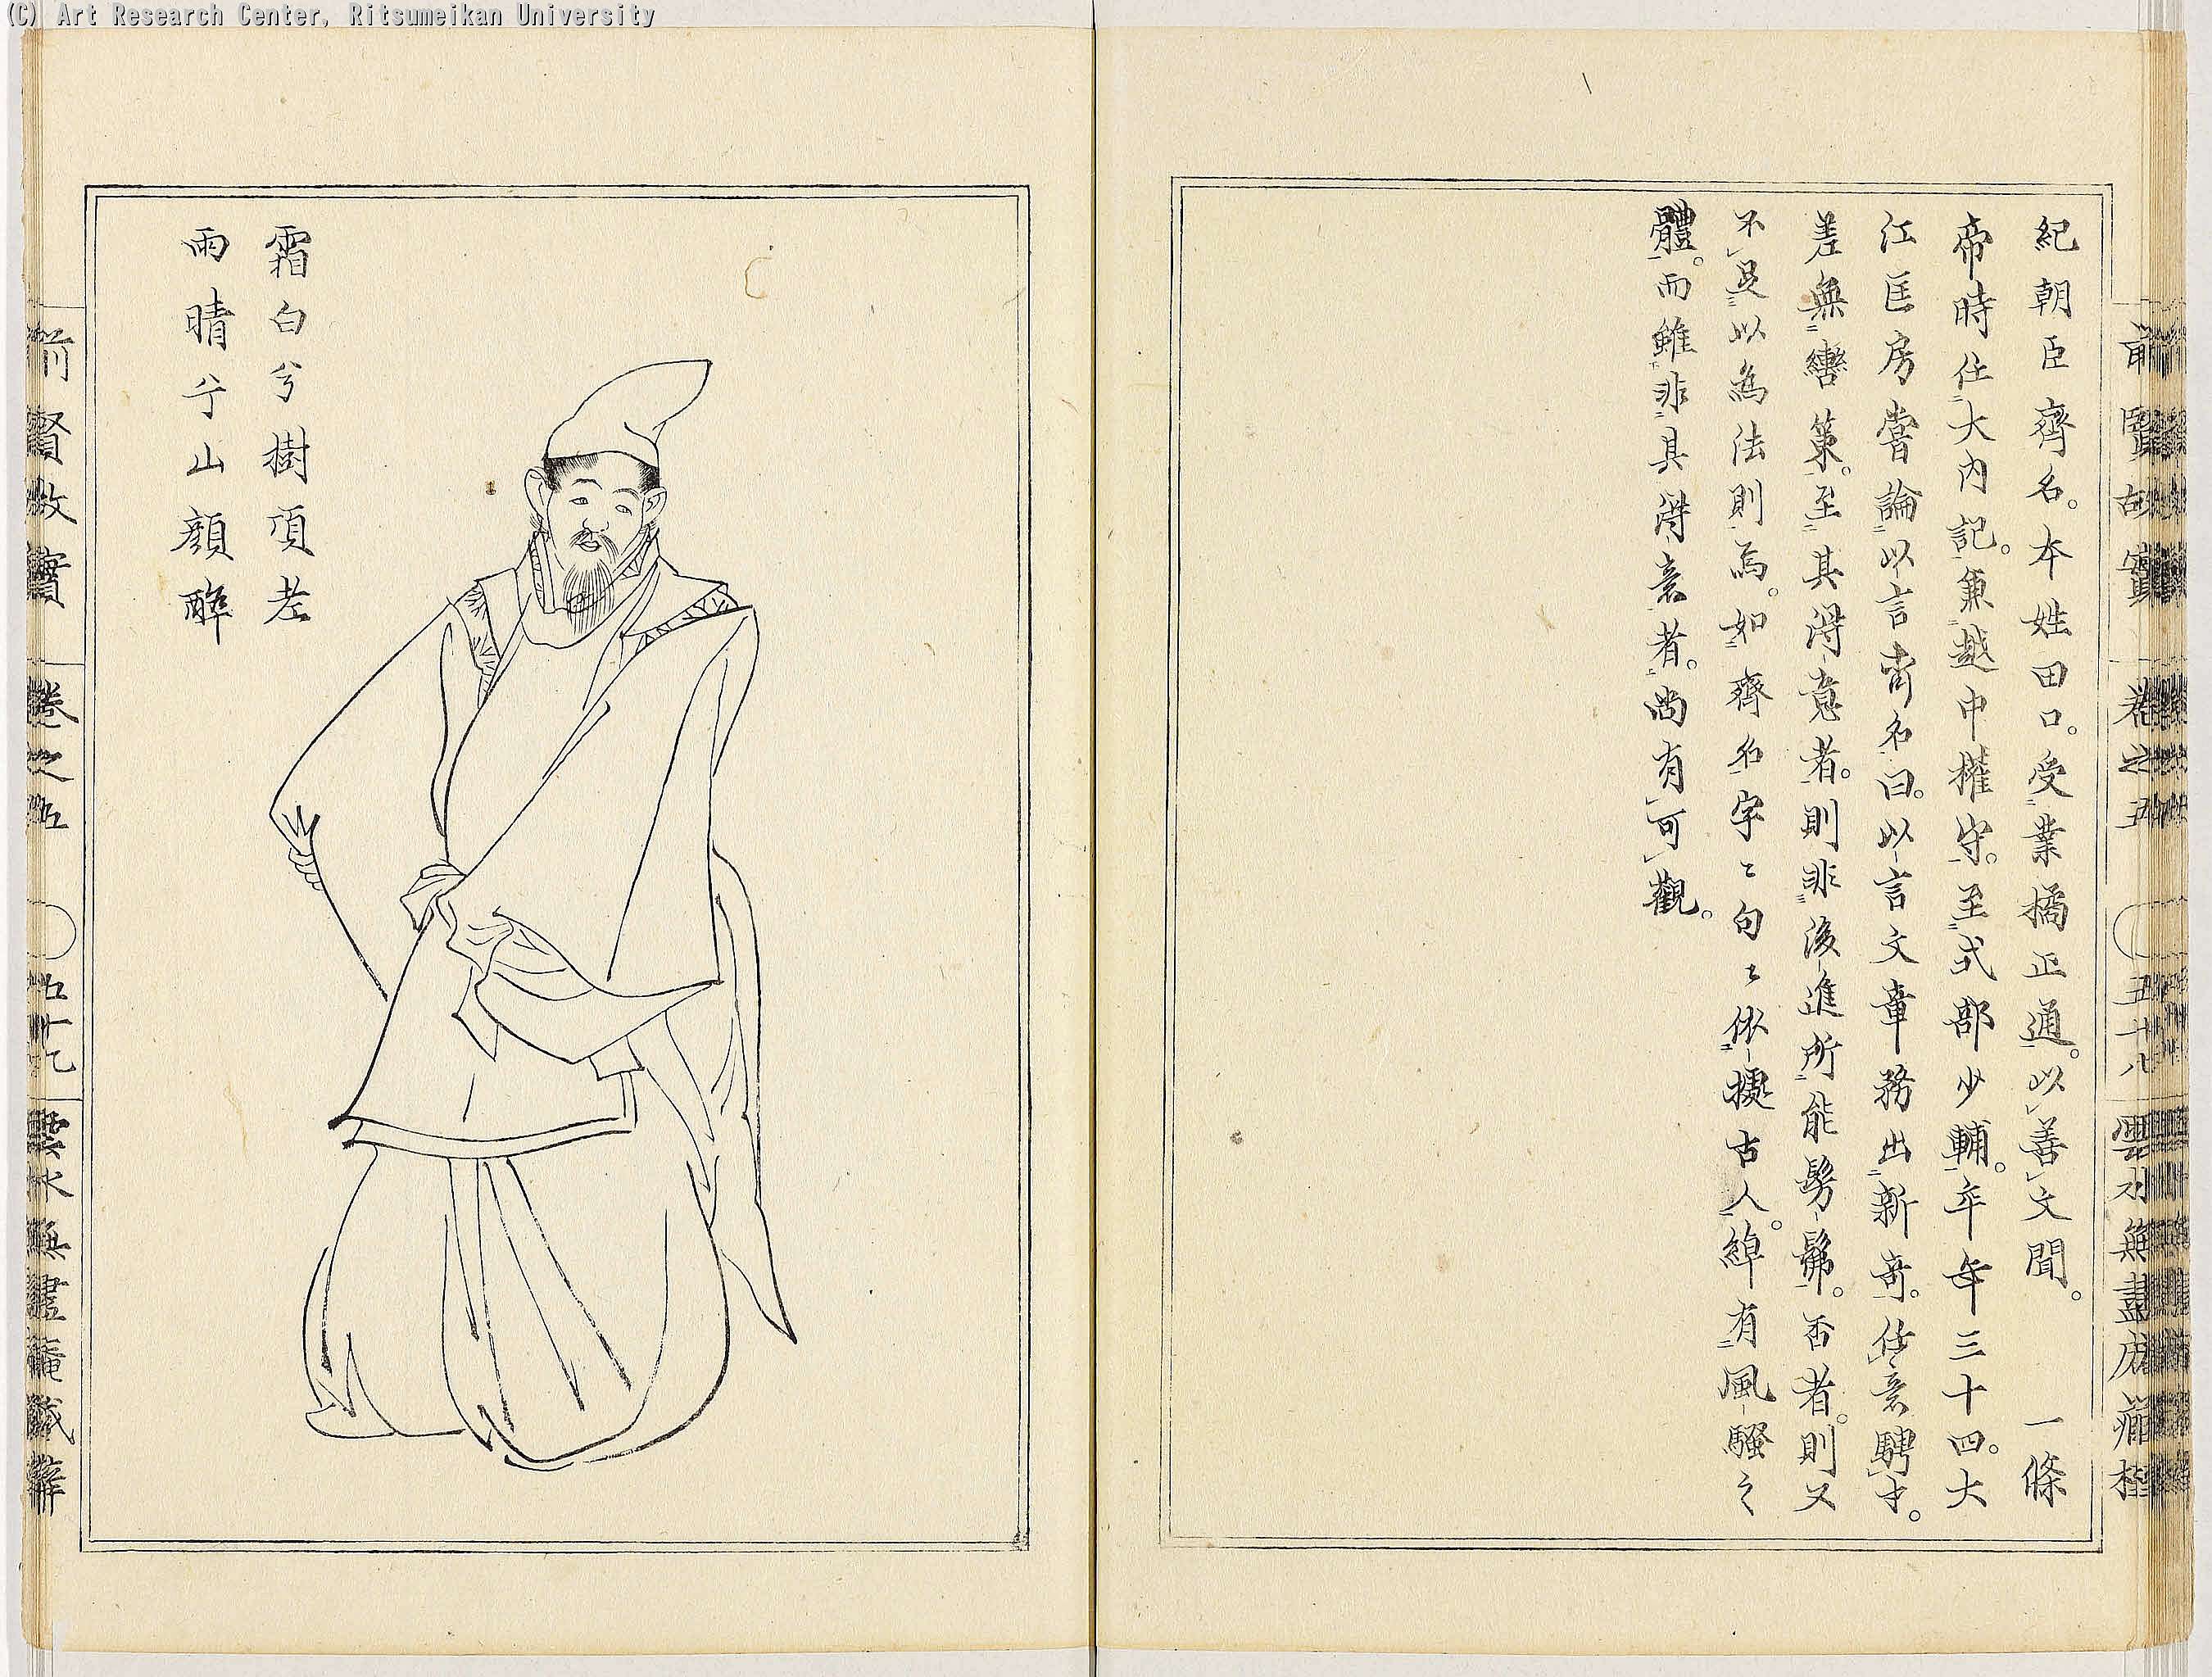 (C) Art Research Center, Ritsumeikan University
前賢故實 卷之五 五十八 雲水無盡庵
紀朝臣齊名。本姓田口。受業橘正通。以善文聞。 一條
帝時任大内記。兼越中權守。至式部少輔。卒年三十四。大
江匡房嘗論以言齊名曰。以言文章務出新奇。任意騁才。
差無轡策。至其得意者。則非後進所能髣髴。否者。則又
不足以為法則焉。如齊名字〻句〻依據古人。綽有風騷之
體。而雖非具得意者。尚有可觀。
霜白兮樹頂老
雨晴兮山顔酔
前賢故實 卷之五 五十九 雲水無盡庵藏